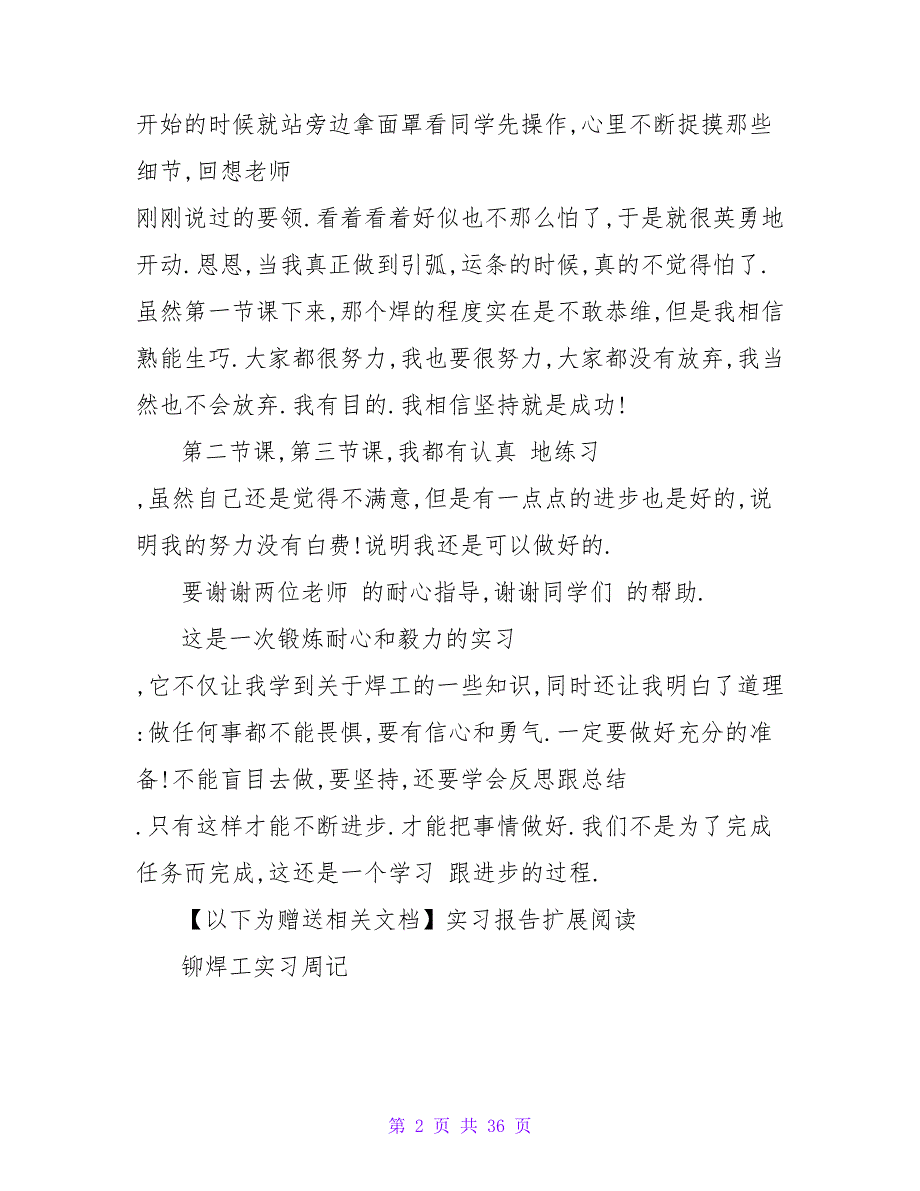 开始的时候就站旁边拿面罩看同学先操作,心里不断捉摸那些
细节,回想老师
刚刚说过的要领.看着看着好似也不那么怕了,于是就很英勇地
开动.恩恩,当我真正做到引弧,运条的时候,真的不觉得怕了.
虽然第一节课下来,那个焊的程度实在是不敢恭维,但是我相信
熟能生巧.大家都很努力,我也要很努力,大家都没有放弃,我当
然也不会放弃.我有目的.我相信坚持就是成功!
第二节课,第三节课,我都有认真 地练习
,虽然自己还是觉得不满意,但是有一点点的进步也是好的,说
明我的努力没有白费!说明我还是可以做好的.
要谢谢两位老师 的耐心指导,谢谢同学们 的帮助.
这是一次锻炼耐心和毅力的实习
,它不仅让我学到关于焊工的一些知识,同时还让我明白了道理
:做任何事都不能畏惧,要有信心和勇气.一定要做好充分的准
备!不能盲目去做,要坚持,还要学会反思跟总结
.只有这样才能不断进步.才能把事情做好.我们不是为了完成
任务而完成,这还是一个学习 跟进步的过程.
【以下为赠送相关文档】实习报告扩展阅读
铆焊工实习周记
第 2 页 共 36 页